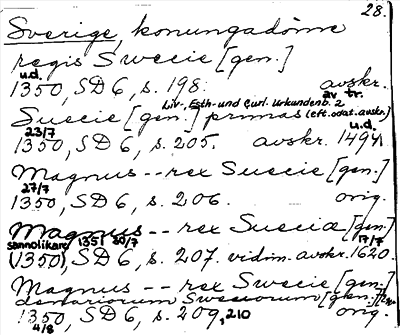 28.
Sverige, konungadöme
regis Swecie [gen.]
u.d. avskr.
1350, SD 6, s. 198. av tr.
Liv-, Esth- und Curl. Urkundenb. 2
Suecie [gen.] primas (eft. odat. avskr.)
23/7 u.d.
1350, SD 6, s. 205. avskr. 1494
Magnus -- rex Suecie [gen.]
27/7
1350, SD 6, s. 206. orig.
Magnus -- rex Sueciæ [gen.]
sannolikare 1351 30/7 17/7
(1350), SD 6, s. 207. vidim. avskr. 1620.
Magnus -- rex Swecie [gen.]
denariorum Sweuorum [gen.]
1350, SD 6, s. 209, 210 orig.
4/8